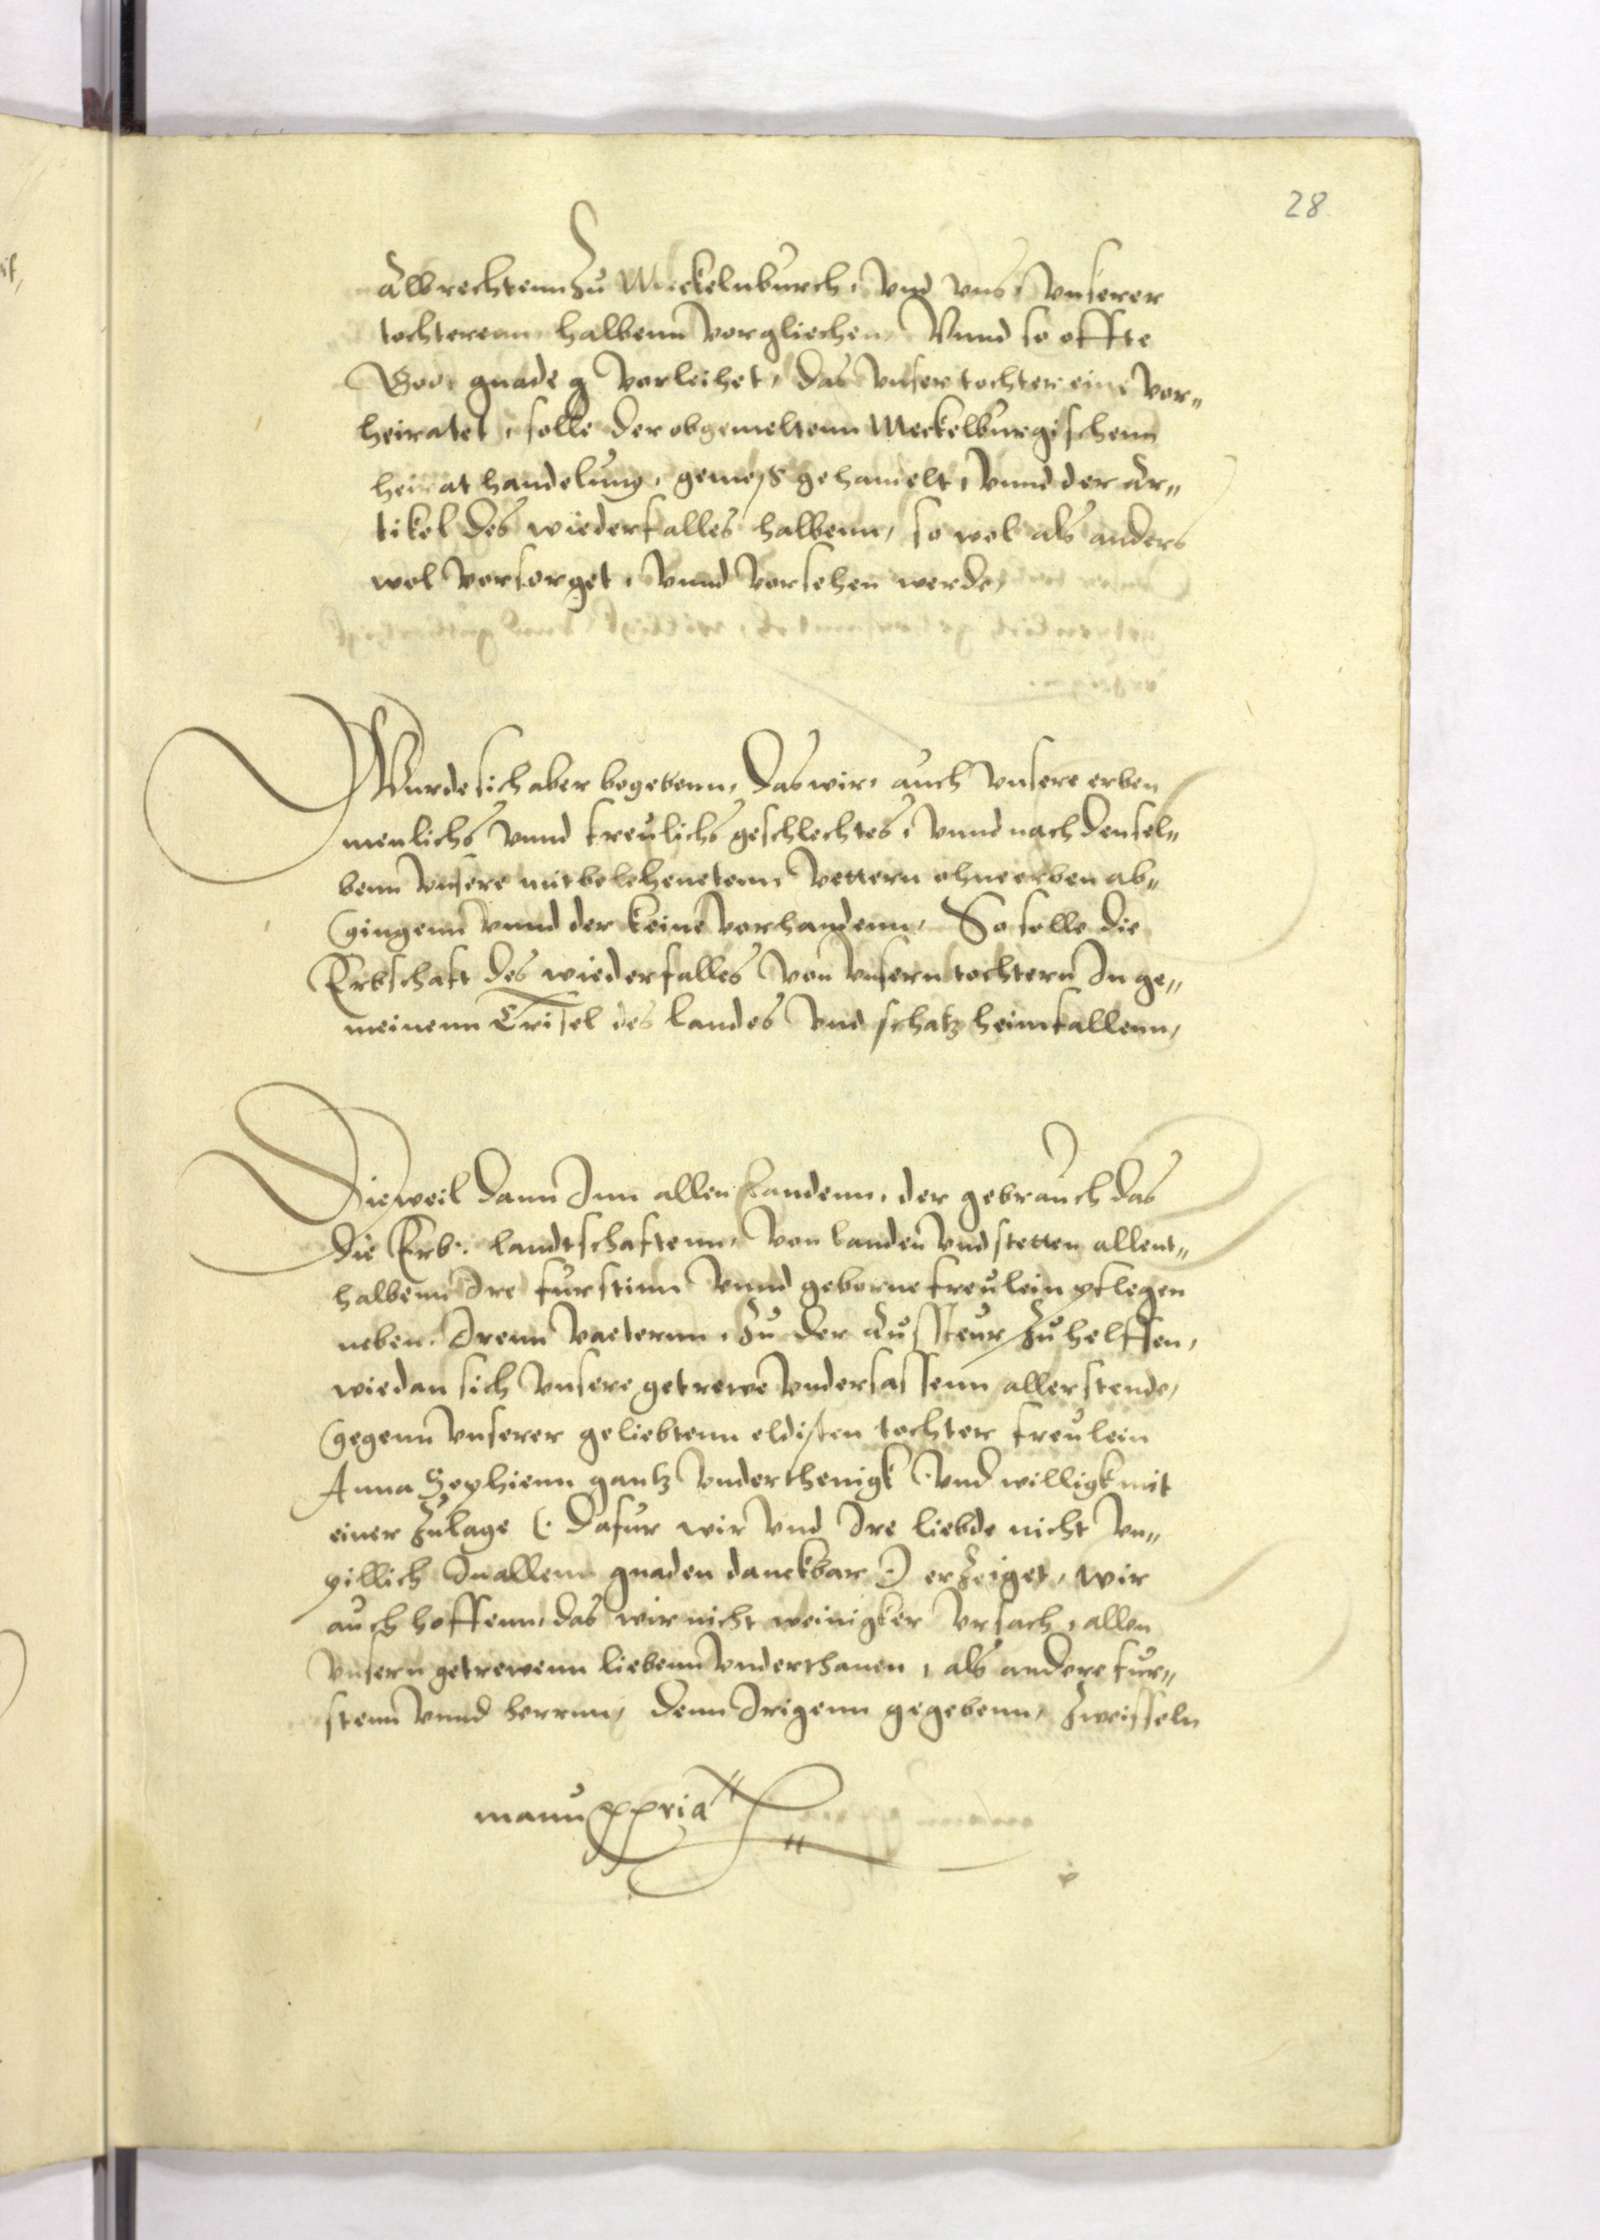 28
Albrechtenn zu Meckelnburch, vnd vns, vnserer
tochterenn halbenn vorgliechen, Vnnd so offte
Got gnade vorleihet, das vnser tochter eine vor„
heiratet, solle der obgemeltenn Meckelburgischenn
heirat handelung, gemeß gehandelt, vnnd der Ar„
tikel des wiederfalles halbenn, so wol als anders
wol vorsorget, vnnd vorsehen werde,
Wurde sich aber begebenn, das wir, auch vnsere erben
menlichs vnnd freulichs geschlechtes, vnnd nach densel„
benn vnsere mitbelehenetenn Vettern ohne erben ab„
gingenn vnnd der keine vorhandenn, So solle die
Erbschaft des wiederfalles von vnsern tochtern In ge„
meinenn Trisel des landes vnd schatz heimfallenn,
Dieweil dann Inn allen Landenn, der gebrauch das
die Erb. landtschaftenn, von landen vnd stetten allent„
halbenn Ire furstinn vnnd geborne freulein pflegen
neben Irenn Vaeternn, zu der Aussteur zu helffen,
wie dan sich vnsere getrewe vndersassenn aller stende,
gegenn vnserer geliebtenn eldisten tochter freulein
Anna Sophienn gantz vnderthenigk vnd willigk mit
einer zulage (: dafur wir vnd Ire liebde nicht vn„
pillich In allenn gnaden danckbar :) erzeiget, wir
auch hoffenn, das wir nicht weinigker vrsach, allen
vnsern getrewenn liebenn vnderthanen, als andere fur„
stenn vnnd herrnn, denn Irigenn gegebenn, zweiffeln
manu ppria